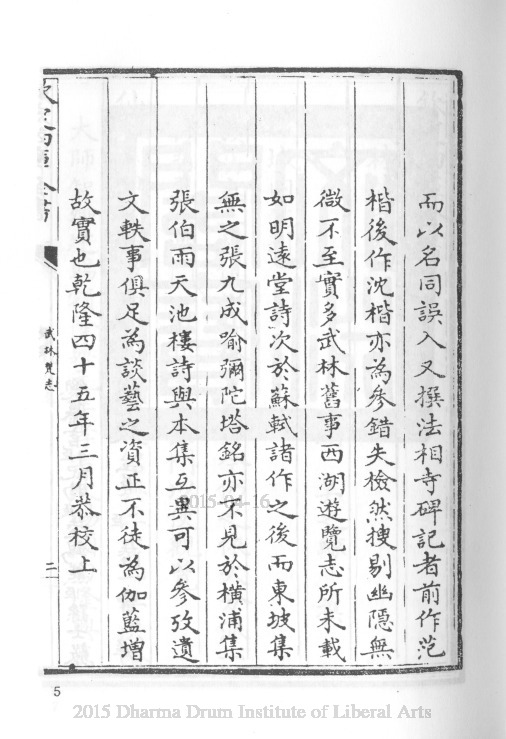 而以名同誤入又撰法相寺碑記者前作范
楷後作沈楷亦為參錯失檢然搜剔幽隱無
微不至實多武林舊事西湖遊覽志所未載
如明遠堂詩次於蘇軾諸作之後而東坡集
無之張九成喻彌陀塔銘亦不見於橫浦集
張伯雨天池樓詩與本集互異可以參攷遺
文軼事俱足為談藝之資正不徒為伽藍增
故實也乾隆四十五年三月恭校上
欽定四庫全書
武林梵志
二
2015-04-16
5
2015 Dharma Drum Institute of Liberal Arts